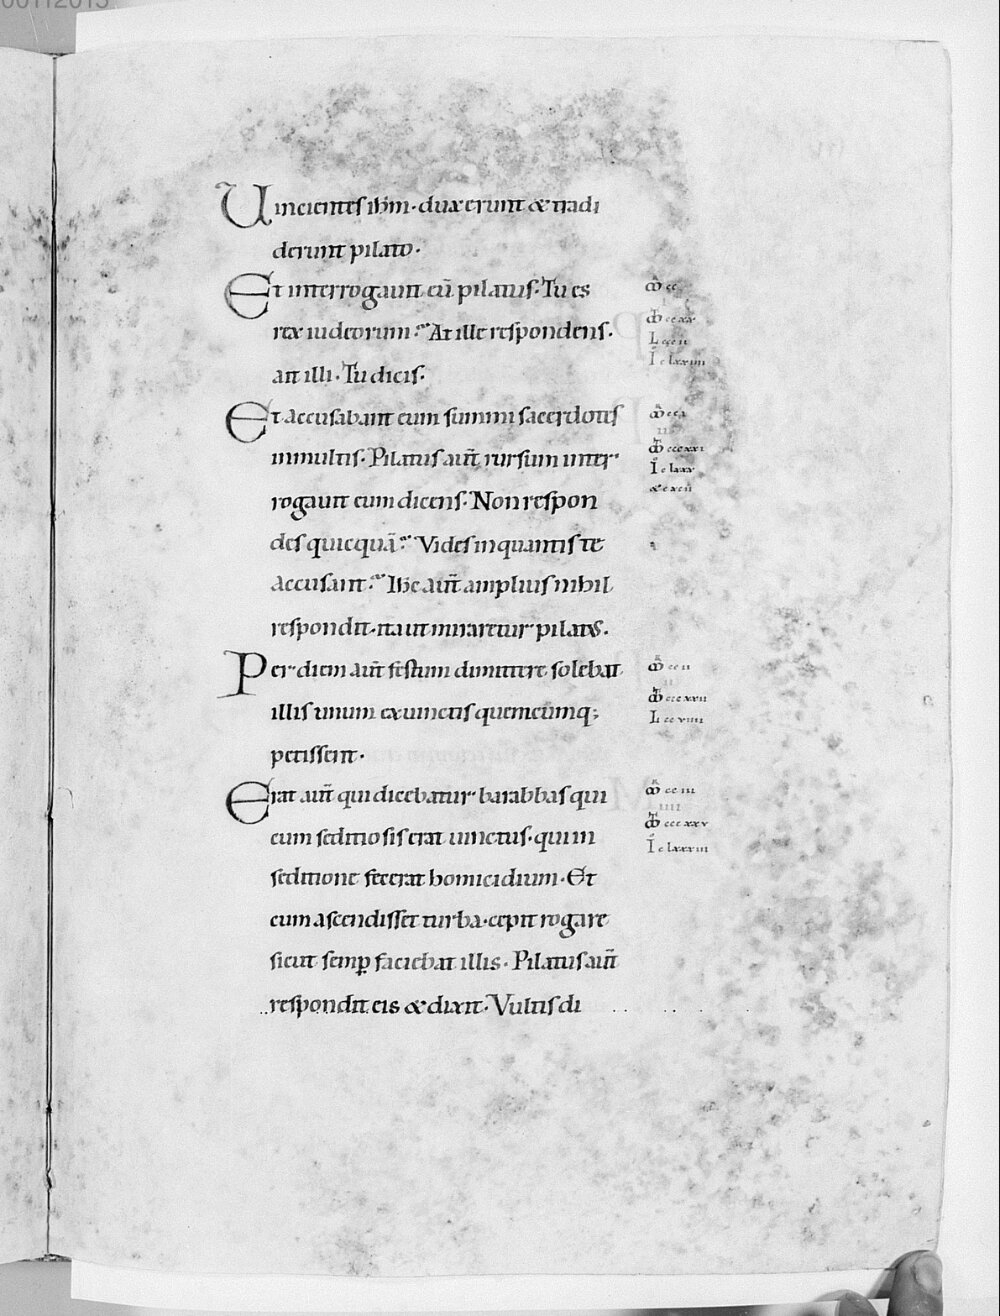 Uincientes ihm · duxerunt & tradi
derunt pilato ·
Et interrogauit eū pilatus · Tu es
rex iudeorum ? At ille respondens ·
ait illi · Tu dicis ·
Et accusabant eum summi sacerdotes
inmultis · Pilatus aut̄ rursum inter
rogauit eum dicens · Non respon
des quicquā ? Vides inquantis te
accusant ? Ihc aut̄ amplius nihil
respondit · ita ut miraretur pilatus ·
Per diem aut̄ festum dimittere solebat
illis unum ex uinctis quemcūmq;
petissent ·
Erat aut̄ qui dicebatur barabbas qui
cum seditiosis erat uinctus · qui in
seditione fecerat homicidium · Et
cum ascendisset turba · cepit rogare
sicut semp̄ faciebat illis · Pilatus aut̄
respondit eis & dixit · Vultis di